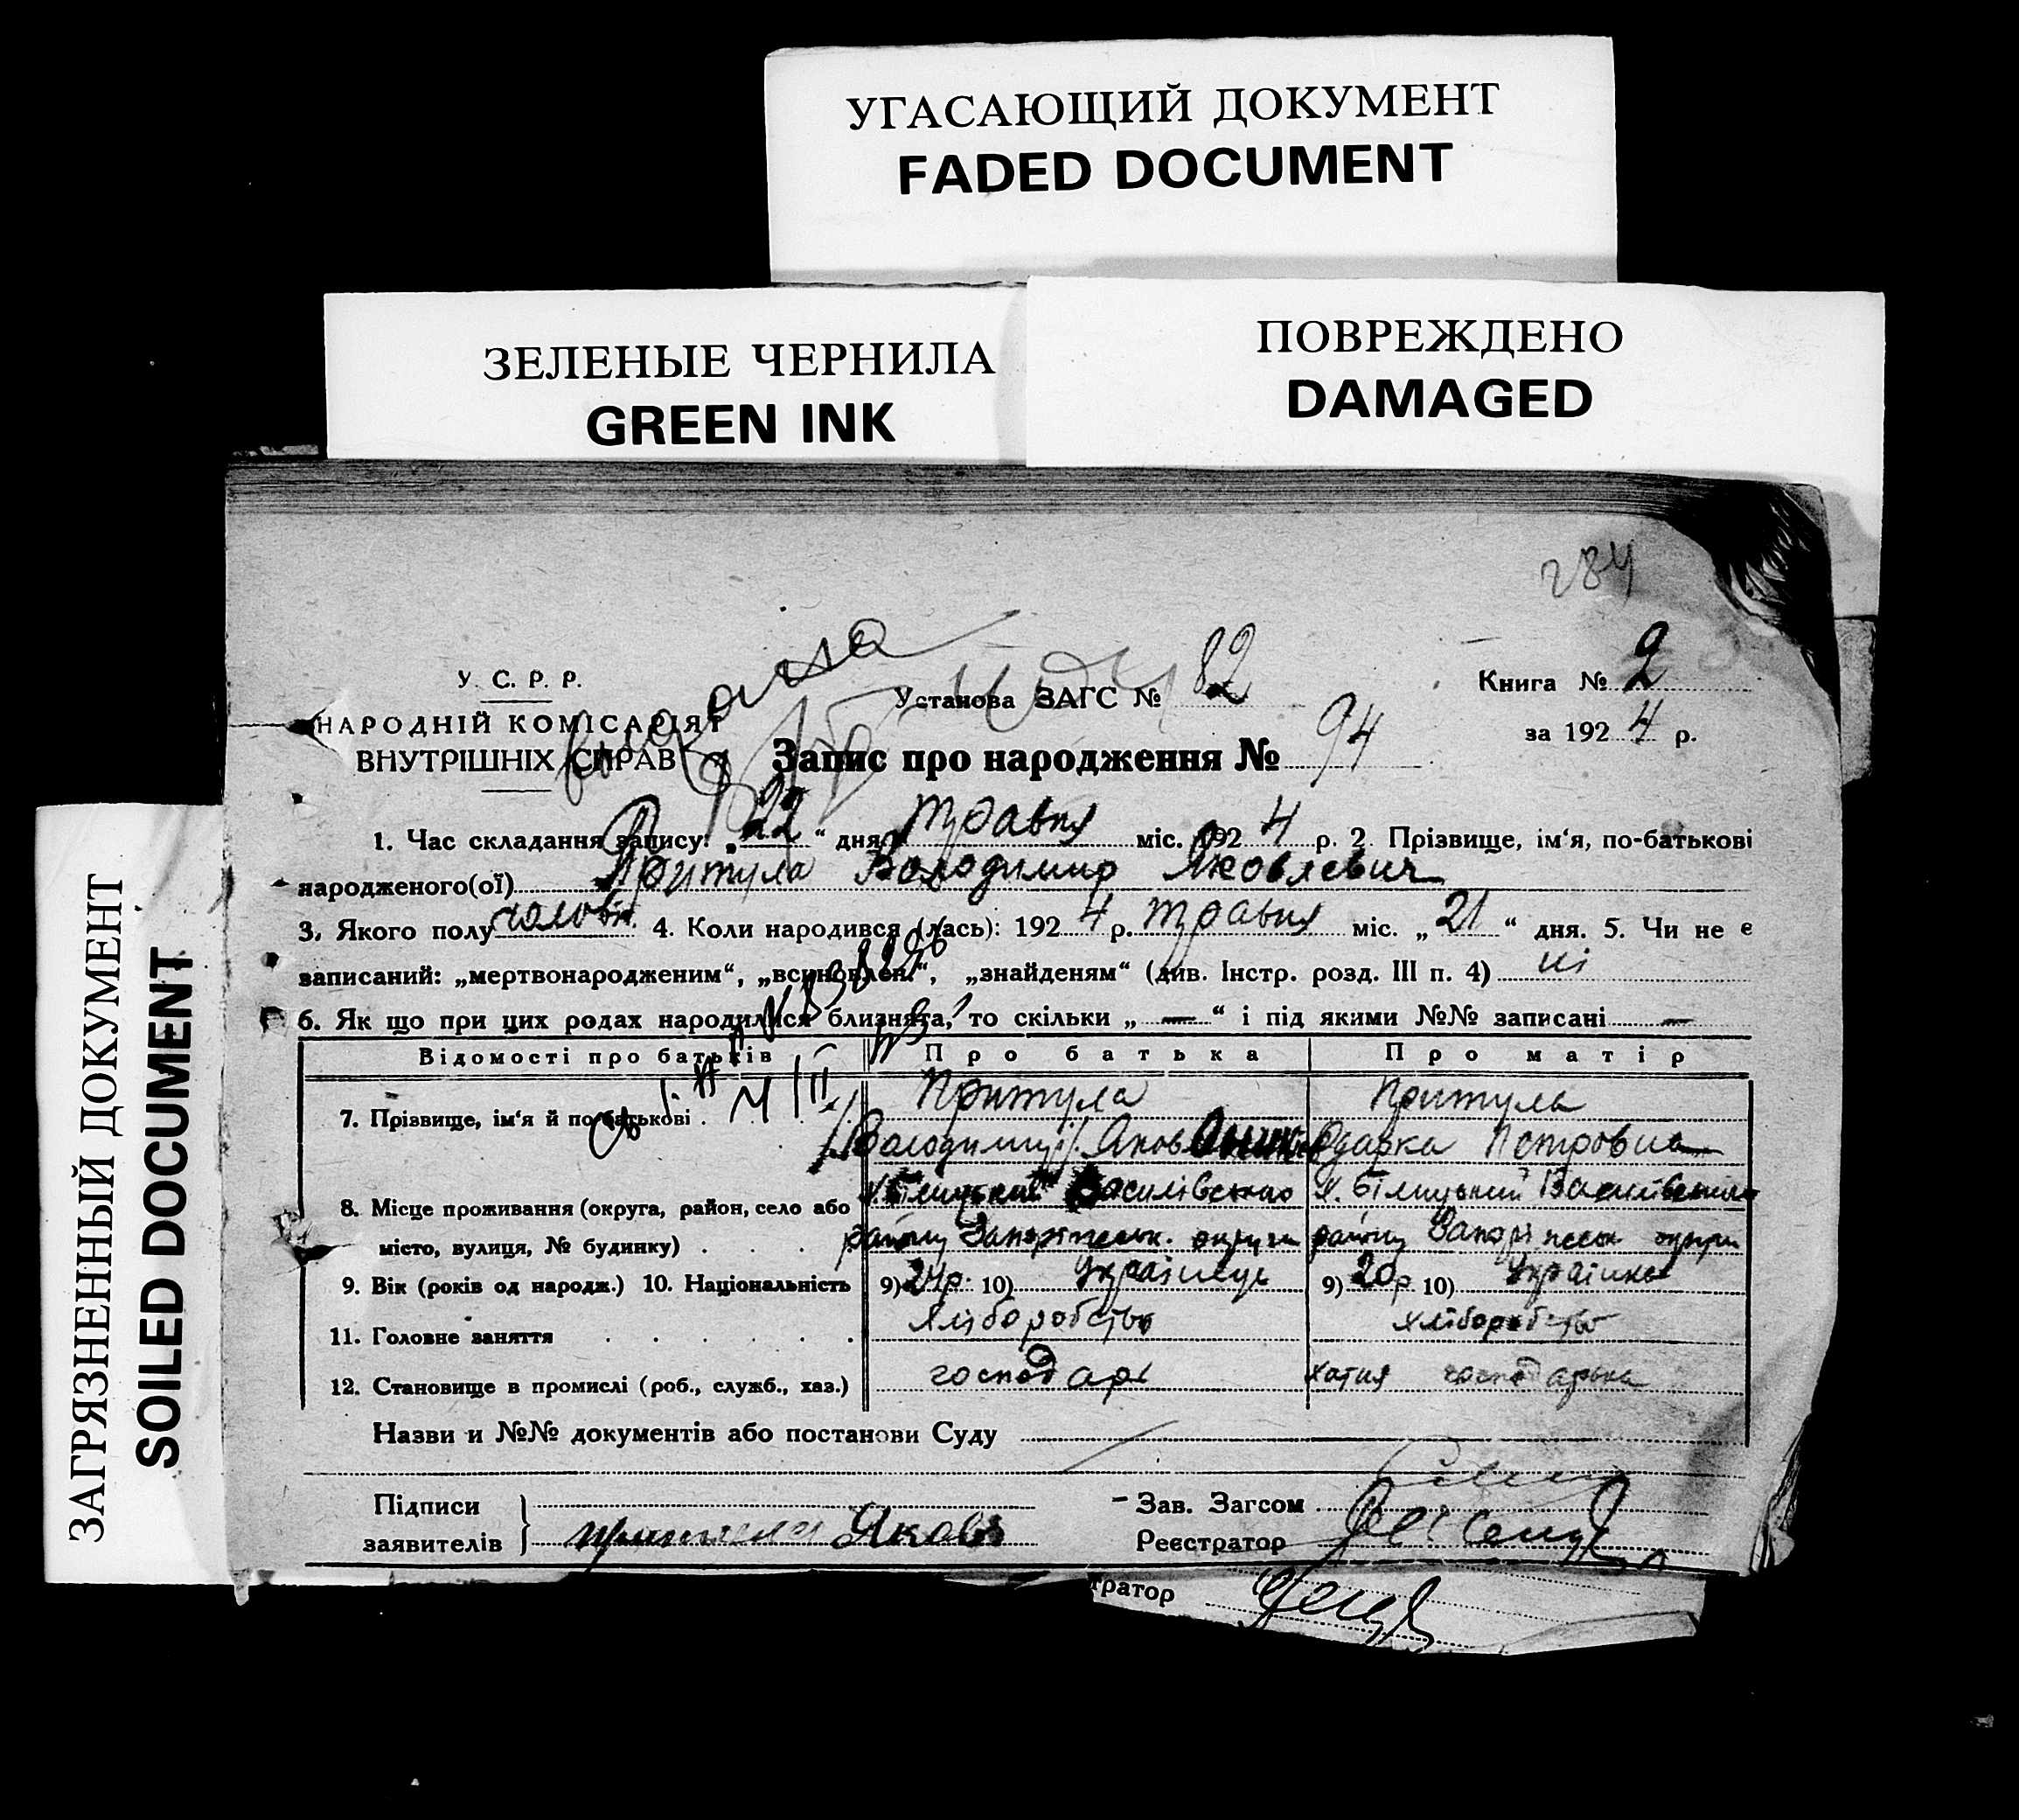 УГАСАЮЩИЙ ДОКУМЕНТ
FADED DOCUMENT
ЗЕЛЕНЫЕ ЧЕРНИЛА
GREEN INK
ПОВРЕЖДЕНО
DAMAGED
ЗАГРЯЗНЕННЫЙ ДОКУМЕНТ
SOILED DOCUMENT
284
У. С. Р. Р.
НАРОДНІЙ КОМІСАРІЯТ
ВНУТРІШНІХ СПРАВ
Установа ЗАГС № 82
Книга № 2
за 1924 р.
Запис про народження № 94
1. Час складання запису: „22“ дня травня міс. 1924 р. 2. Прізвище, ім‘я, по-батькові
народженого(ої) Притула Володимир Яковлевич
3. Якого полу чоловіч. 4. Коли народився (лась): 1924 р. травня міс. „21“ дня. 5. Чи не є
записаний: „мертвонародженим“, „всиновлен.“, „знайденям“ (див. Інстр. розд. III п. 4) ні
6. Як що при цих родах народилися близнята, то скільки „ — “ і під якими №№ записані —
Відомості про батьків Про батька Про матір
7. Прізвище, ім‘я й по батькові Притула Притула
Володимир Яков Одарка Петровна
8. Місце проживання (округа, район, село або х. Білицький Василівсько х. Білицький Василівсько
місто, вулиця, № будинку) району Запоріжськ. округи району Запоріжськ округи
9. Вік (років од народж.) 10. Національність 9) 24 р. 10) Українець 9) 20 р 10) Українка
11. Головне заняття Хліборобство хліборобство
12. Становище в промислі (роб., служб., хаз.) господарь хатня господарька
Назви и №№ документів або постанови Суду
Підписи
заявителів Притула Яков
Зав. Загсом
Реєстратор
тратор